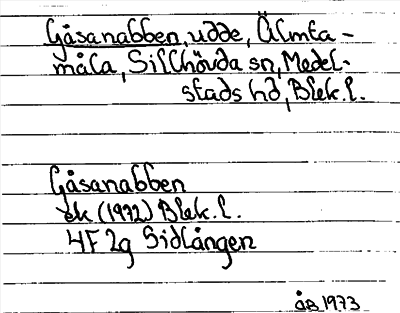 Gåsanabben, udde, Älmta-
måla, Sillhövda sn, Medel-
stads hd, Blek. l.
Gåsanabben
ek (1972) Blek. l.
4F 2g Sidlången
ÅB 1973